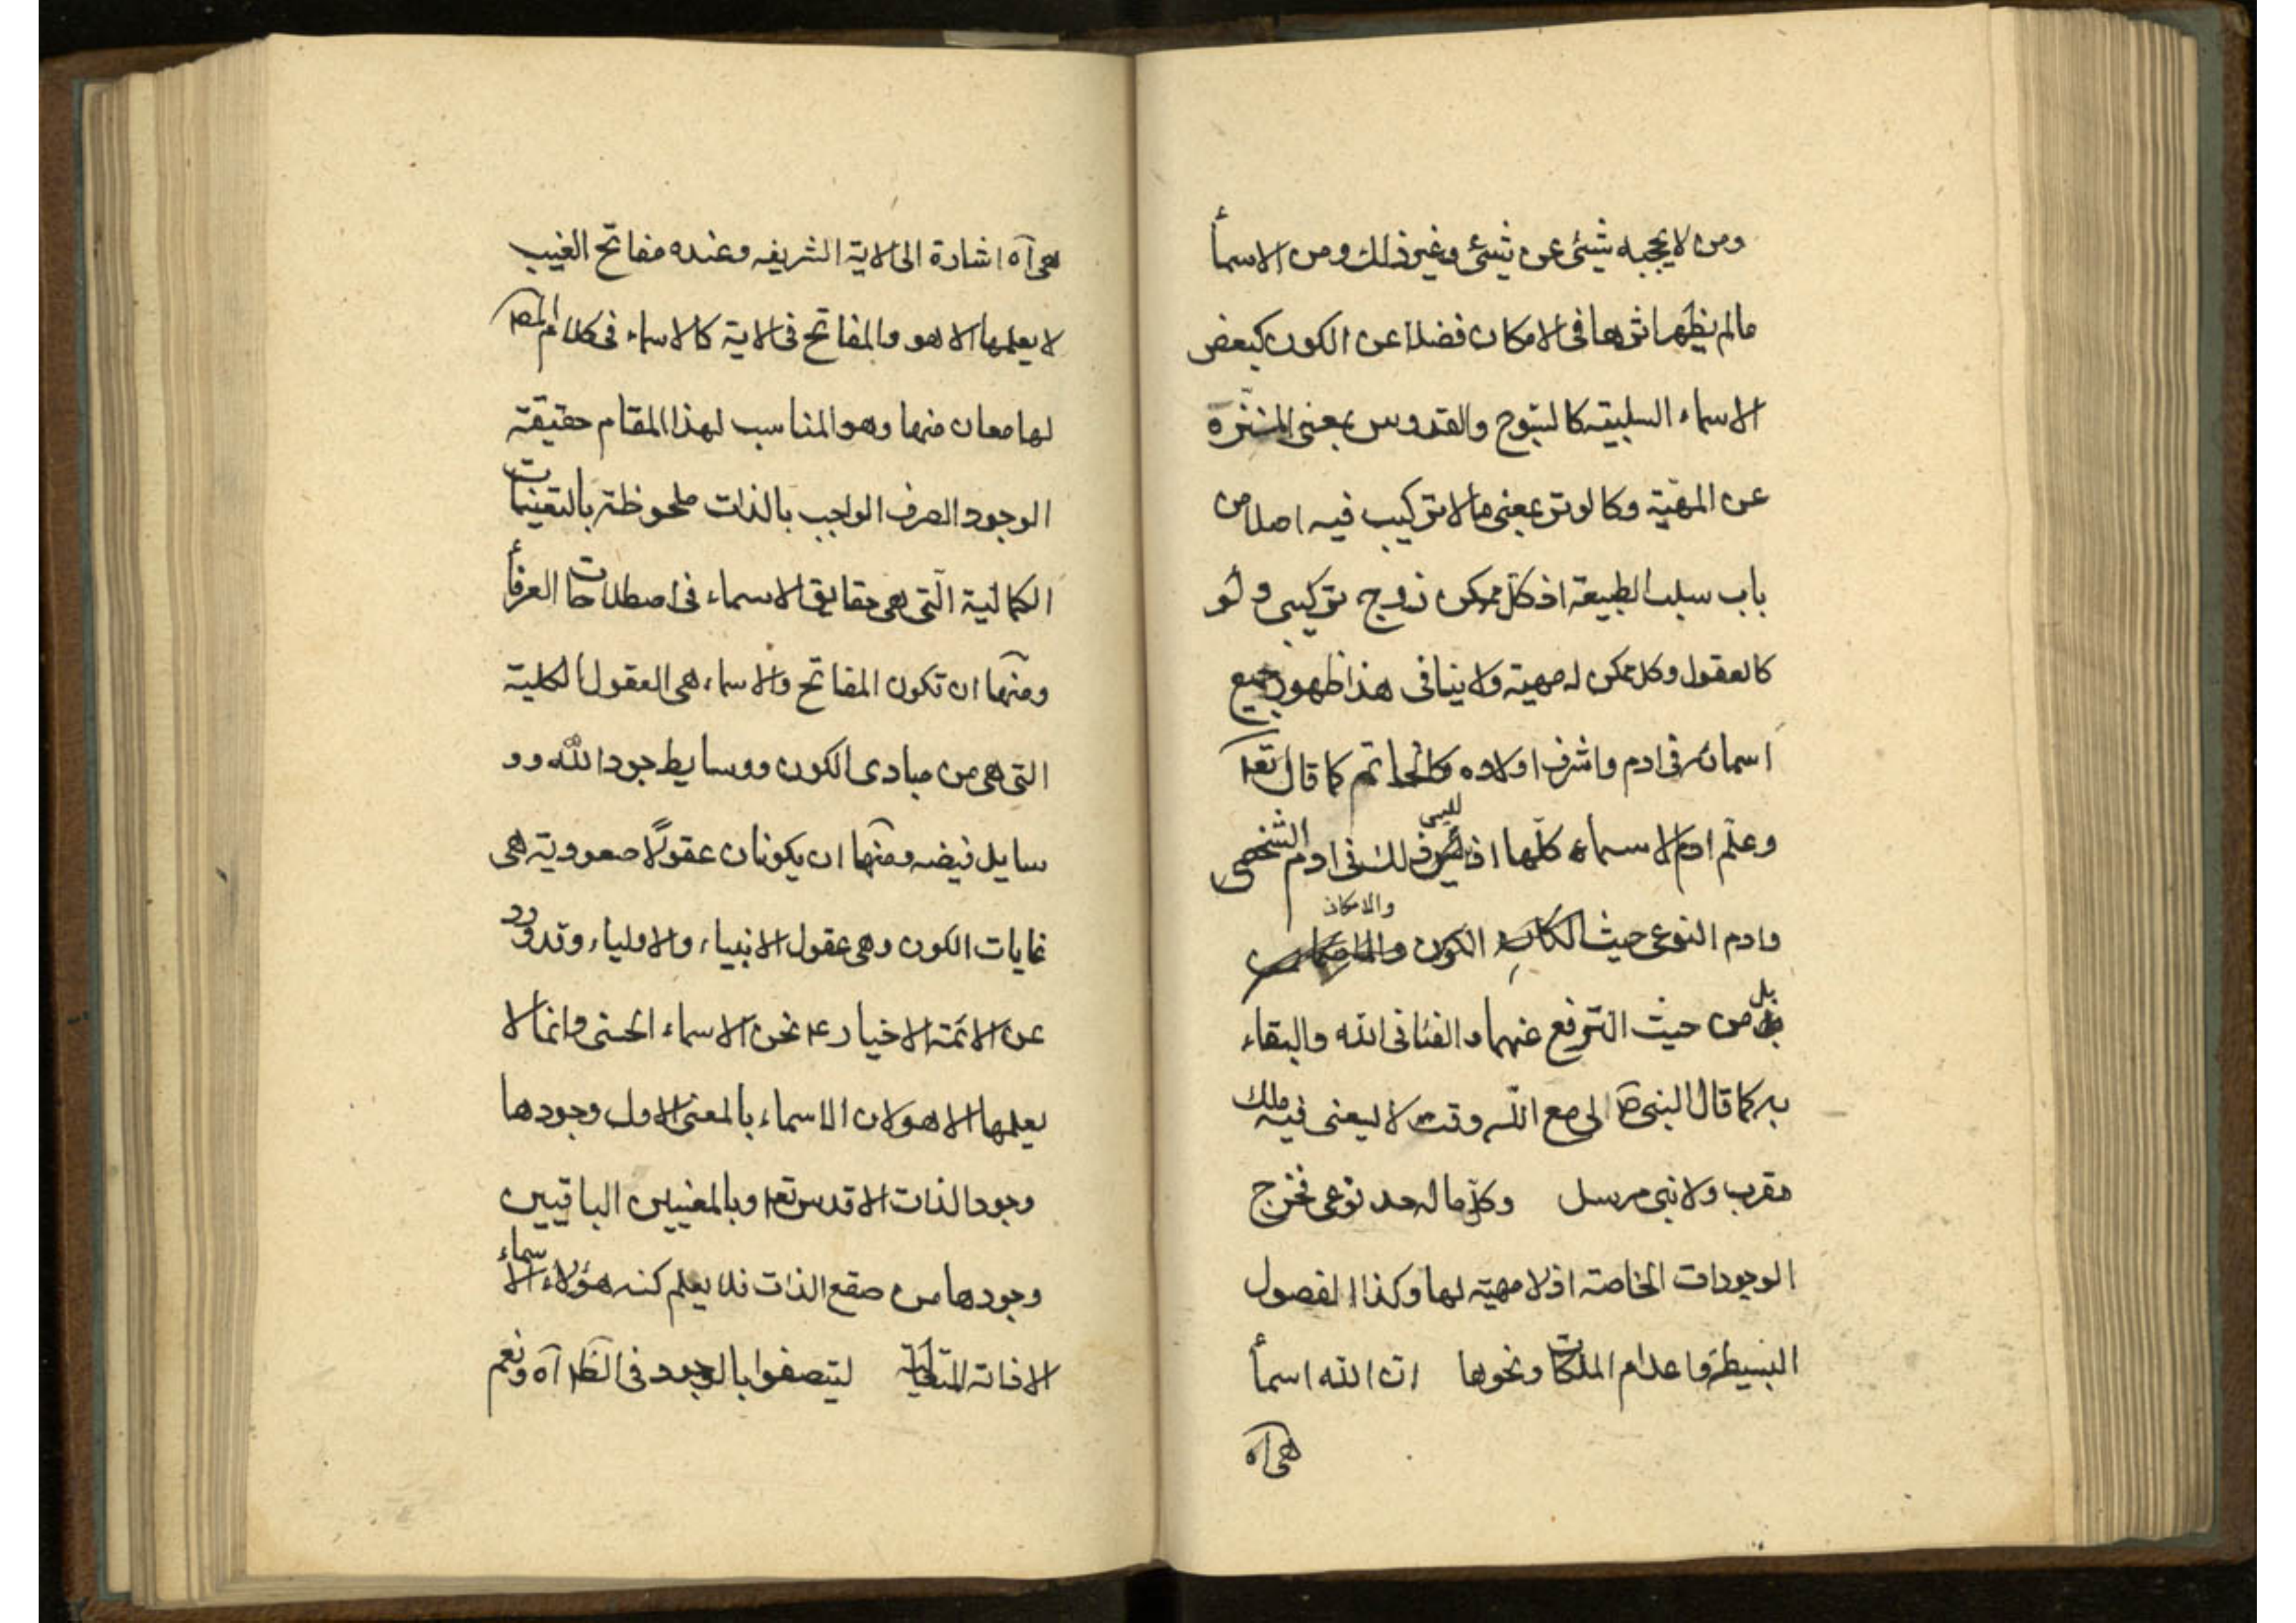 ومن لا يحجبه شيئ عن شيئ وغير ذلك ومن الاسمأ
مالم يظهر اثرها فى الامكان فضلا عن الكون كبعض
الاسماء السلبيته كالسبوح والقدوس بمعنى المنزة
عن المهيّة وكالوتر بمعنى مالا تركيب فيه اصلا من
باب سلب الطبيعة اذ كل ممكن زوج تركيبى ولو
كالعقول وكل ممكن له مهية ولا ينافى هذا ظهور جميع
اسمائه فى ادم واشرف اولاده كالخاتم كما قال تعا
وعلّم ادم الاسماء كلّها اذ ليس ذلك فى ادم الشخصى
وادم النوعى حيث الكون والامكان
بل من حيث الترفع عنهما والفنا فى الله والبقاء
به كما قال النبى ص لى مع الله وقت لا يسعنى فيه ملك
مقرب ولا نبى مرسل وكل ما له حد نوعى فخرج
الوجودات الخاصته اذ لا مهية لها وكذا الفصول
البسيطة واعدام الملكات ونحوها ان الله اسمأ
هى آه
هى آه اشارة الى الاية الشريفه وعنده مفاتح الغيب
لا يعلمها الا هو والمفاتح فى الاية كالاسماء فى كلام المص
لها معان منها وهو المناسب لهذا المقام حقيقة
الوجود الصرف الواجب بالذات ملحوظة بالتعينات
الكمالية الّتى هى حقايق الاسماء فى اصطلاحات العرفأ
ومنها ان تكون المفاتح والاسماء هى العقول الكلية
التى هى من مبادى الكون ووسايط جود الله وو
سايل فيضه ومنها ان يكونان عقولًا صعودية هى
غايات الكون وهى عقول الانبياء والاولياء وقد ورد
عن الائمة الاخيار ع نحن الاسماء الحسنى وانما لا
يعلمها الا هو لان الاسماء بالمعنى الاول وجودها
وجود الذات الاقدس تعا وبالمعنيين الباقيين
وجودها من صقع الذات فلا يعلم كنه هؤلاء الاسماء
الا ذاته المتعالية ليتصفوا بالوجود فى الظا آه ونعم